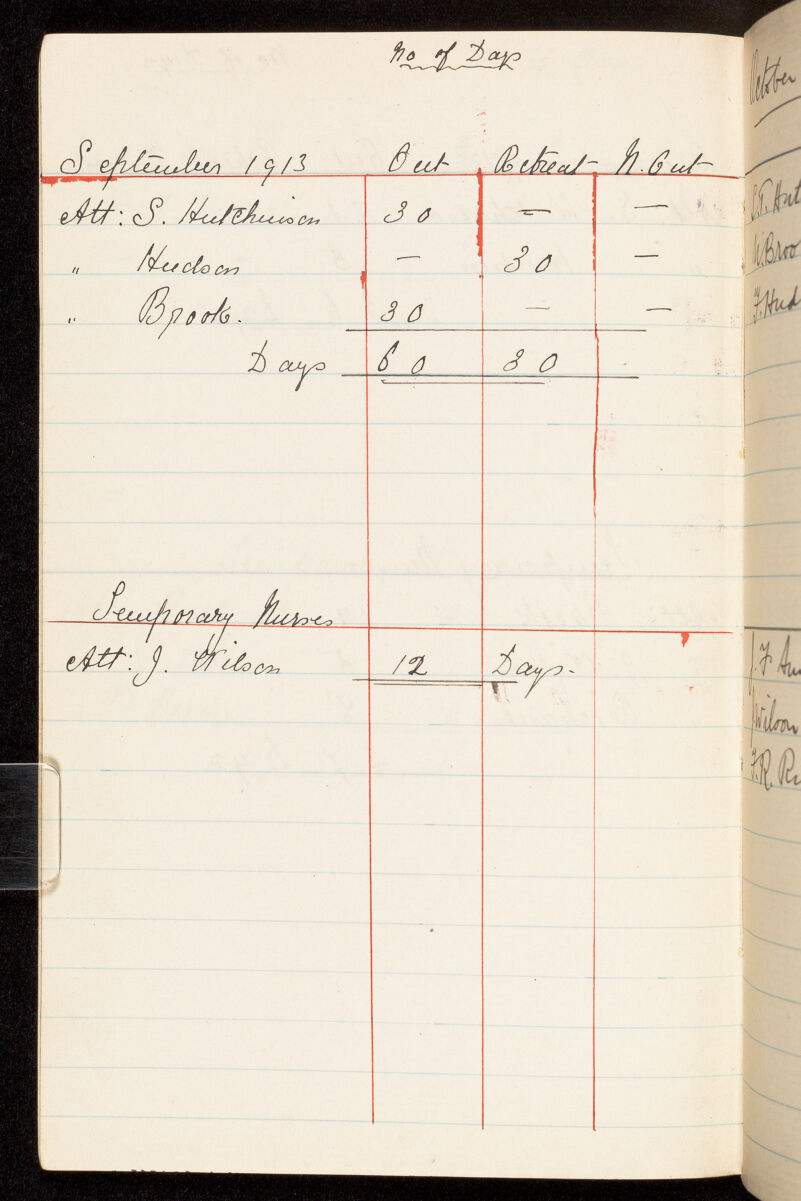 No of Days
September 1913 Out Retreat N. Out
Att: S. Hutchinson 30 — —
" Hudson — 30 —
" Brook. 30 — —
Days 60 30
Temporary Nurses
Att: J. Wilson 12 Days-
October
W. Broo
F. Hud
Wilson